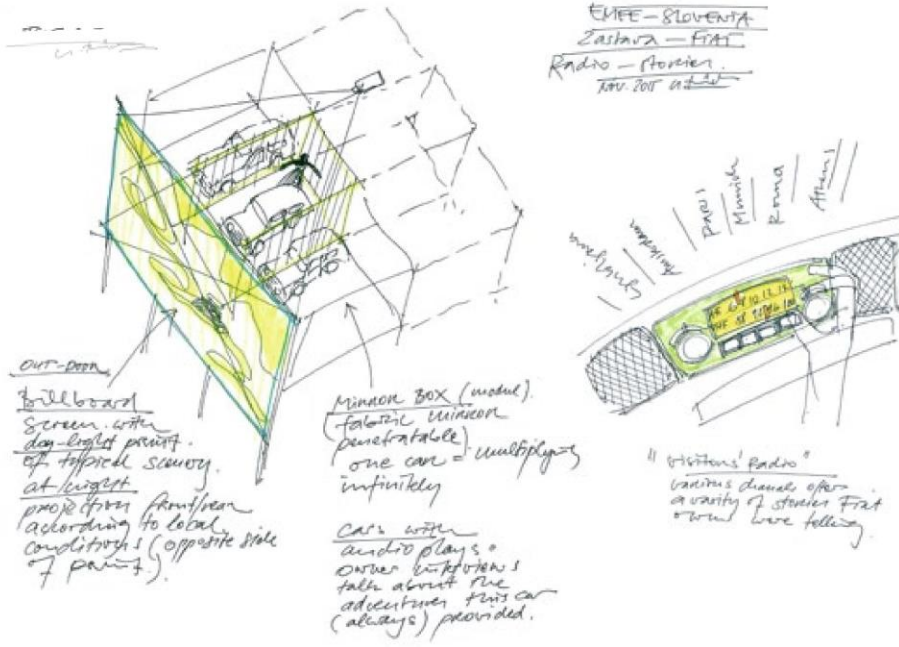 EMEE – SLOVENIA
Zastava – FIAT
Radio – stories.
Nov. 2015
Ljubljana
Paris
Munich
Roma
Athens
OUT-DOOR
Billboard
Screen with
day-light paint.
of typical scenery.
at night
projection front/rear
according to local
conditions (opposite side
of paint.)
MIRROR BOX (model).
(fabric mirror
penetratable)
one car = multiplying
infinitely
cars with
audio plays.
owner interviews
talk about the
adventures this car
(always) provided.
"visitors' Radio"
various channels offers
a varity of stories Fiat
owners were telling.